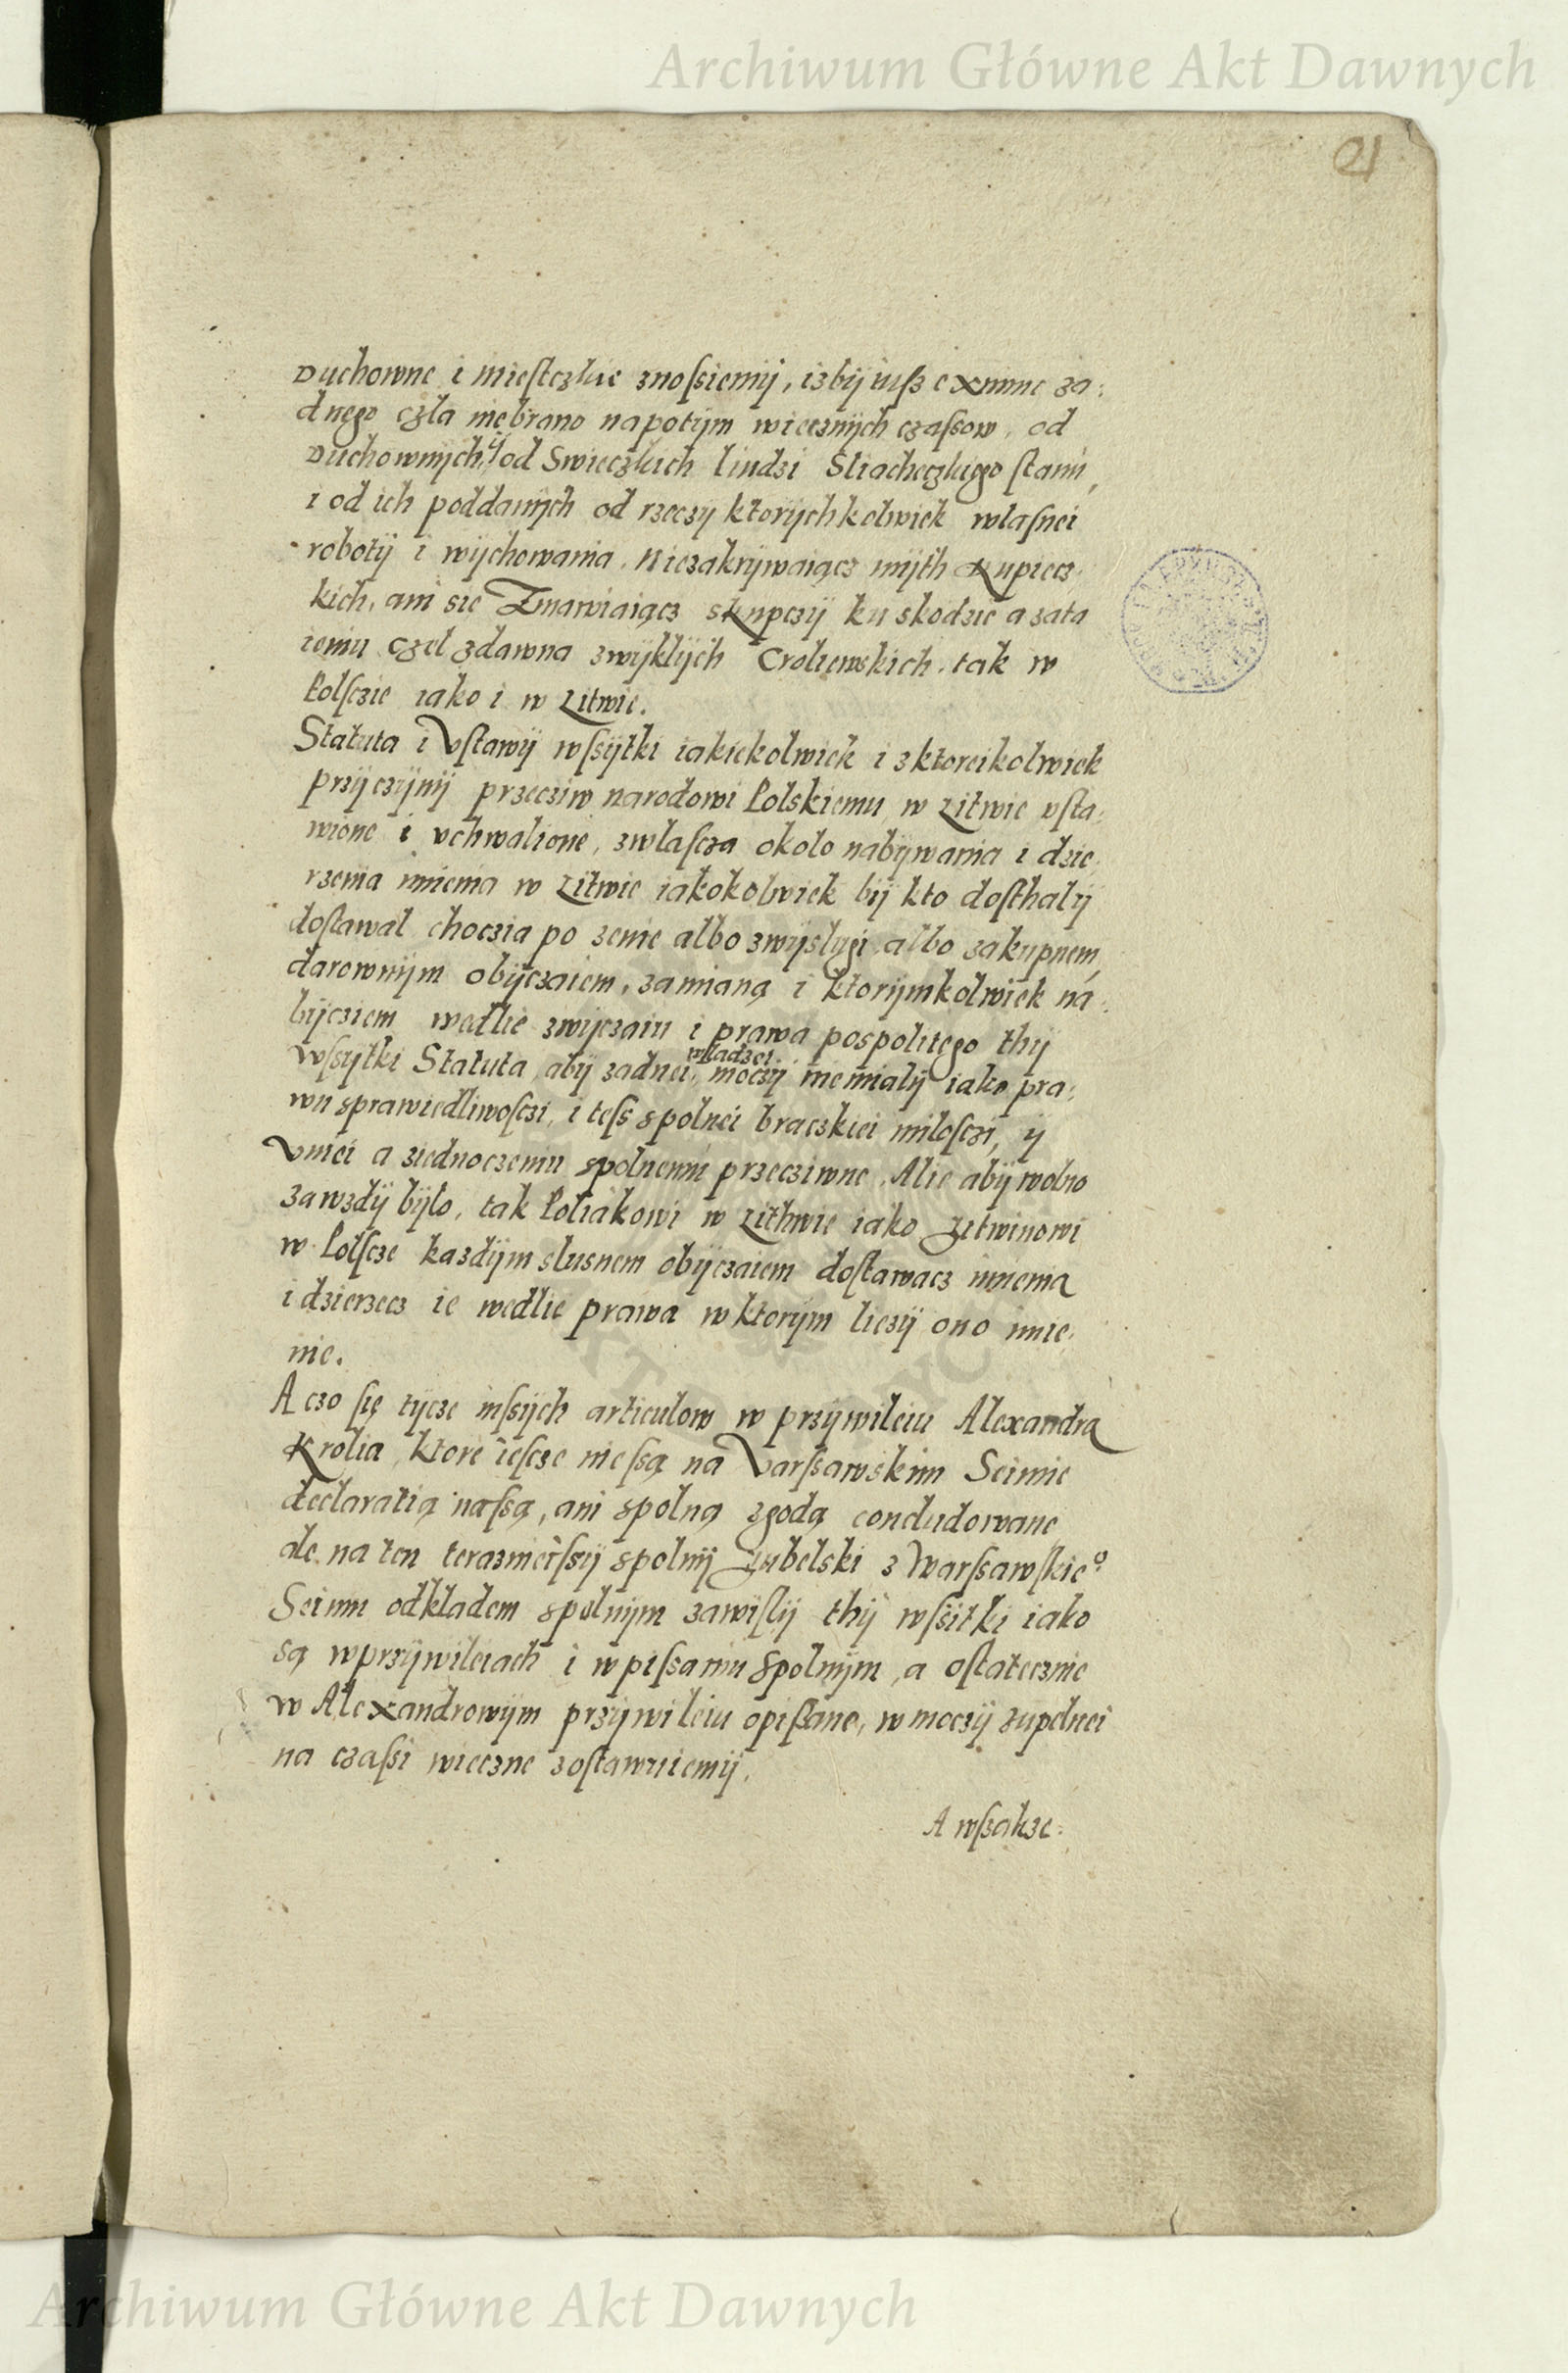 Archiwum Główne Akt Dawnych
21
Duchowne i miesteczkie znossiemÿ, izbÿ iusz exnunc za:
dnego czla niebrano napotÿm wiecznÿch czassow, od
Duchownÿch, ÿ od Swieczkich liudzi Sliacheczkiego stanu,
i od ich poddanÿch od rzeczÿ ktorÿchkolwiek wlasnei
robotÿ i wÿchowania. Niezakrÿwaiącz mÿth kupiecz
kich, ani sie Zmawiaiącz skupczÿ ku skodzie a zata
ieniu czel zdawna zwÿklÿch Croliewskich. tak w
Polsczie iako i w Litwie.
Statuta i Ustawÿ wssÿtki iakiekolwiek i z ktoreikolwiek
przÿczÿnÿ przecziw narodowi Polskiemu w Litwie usta:
wione i uchwalione, zwlascza okolo nabÿwania i dzie
rzenia imienia w Litwie iakokolwiek bÿ kto dosthalÿ
dostawal choczia po zenie albo zwÿslugi albo zakupnem,
darownÿm obÿczaiem, zamianą i ktorÿmkolwiek na:
bÿcziem wedlie zwÿczaiu i prawa pospolitego thÿ
wssÿtki Statuta, abÿ zadnei wladzei moczÿ nie mialÿ iako pra:
wu sprawiedliwosczi, i tess spolnei braczkiei milosczi, ÿ
Uniei a ziednoczeniu spolnemu przecziwne. Alie abÿ wolno
zawzdÿ bÿlo, tak Poliakowi w Lithwie iako Litwinowi
w Polscze kazdÿm slusnem obÿczaiem dostawacz imienia
i dzierzecz ie wedlie prawa w ktorÿm liezÿ ono imie:
nie.
A czo się tÿcze inssÿch articulow w przÿwileiu Alexandra
Krolia, ktore iescze nie są na Varssawskim Seimie
declaratią nassą, ani spolną zgodą concludowane
ale na ten teraznieissÿ spolnÿ Lubelski z Warssawskieº
Seimu odkladem spolnÿm zawislÿ thÿ wssitki iako
są wprzÿwileiach i wpissaniu Spolnÿm, a ostatecznie
w Alexandrowÿm przÿwileiu opissane, w moczÿ zupelnei
na czassi wieczne zostawuiemÿ.
A wszakze:
Archiwum Główne Akt Dawnych